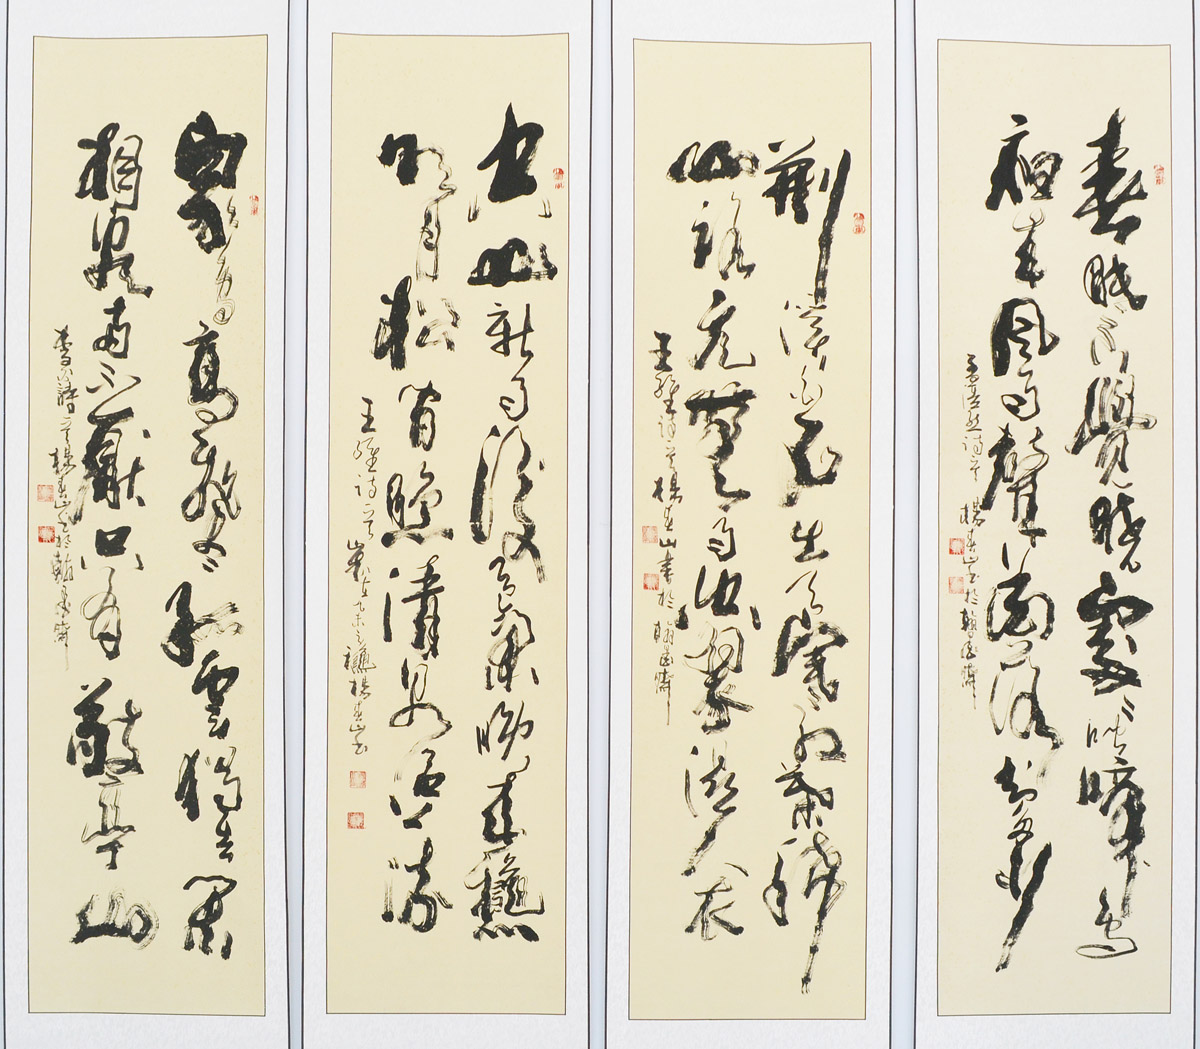 春眠不覺曉處々聞啼鳥
夜來風雨聲花落知多少
孟浩然詩一首 楊春山書於翰墨齋
荊溪白石出天寒紅葉稀
山路元無雨空翠濕人衣
王維詩一首楊春山書於翰墨齋
空山新雨後天氣晚來秋
明月松間照清泉石上流
王維詩一首歲在之秋楊春山書
眾鳥高飛盡孤雲獨去閑
相看兩不厭只有敬亭山
李白詩一首楊春山書於翰墨齋